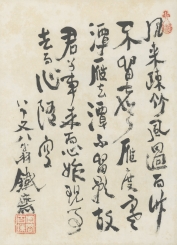 風来疎竹風過而竹
不留聲雁度寒
潭雁去潭不留影故
君子事来而心始現事
去而心随空
八十又八翁 鐵齋